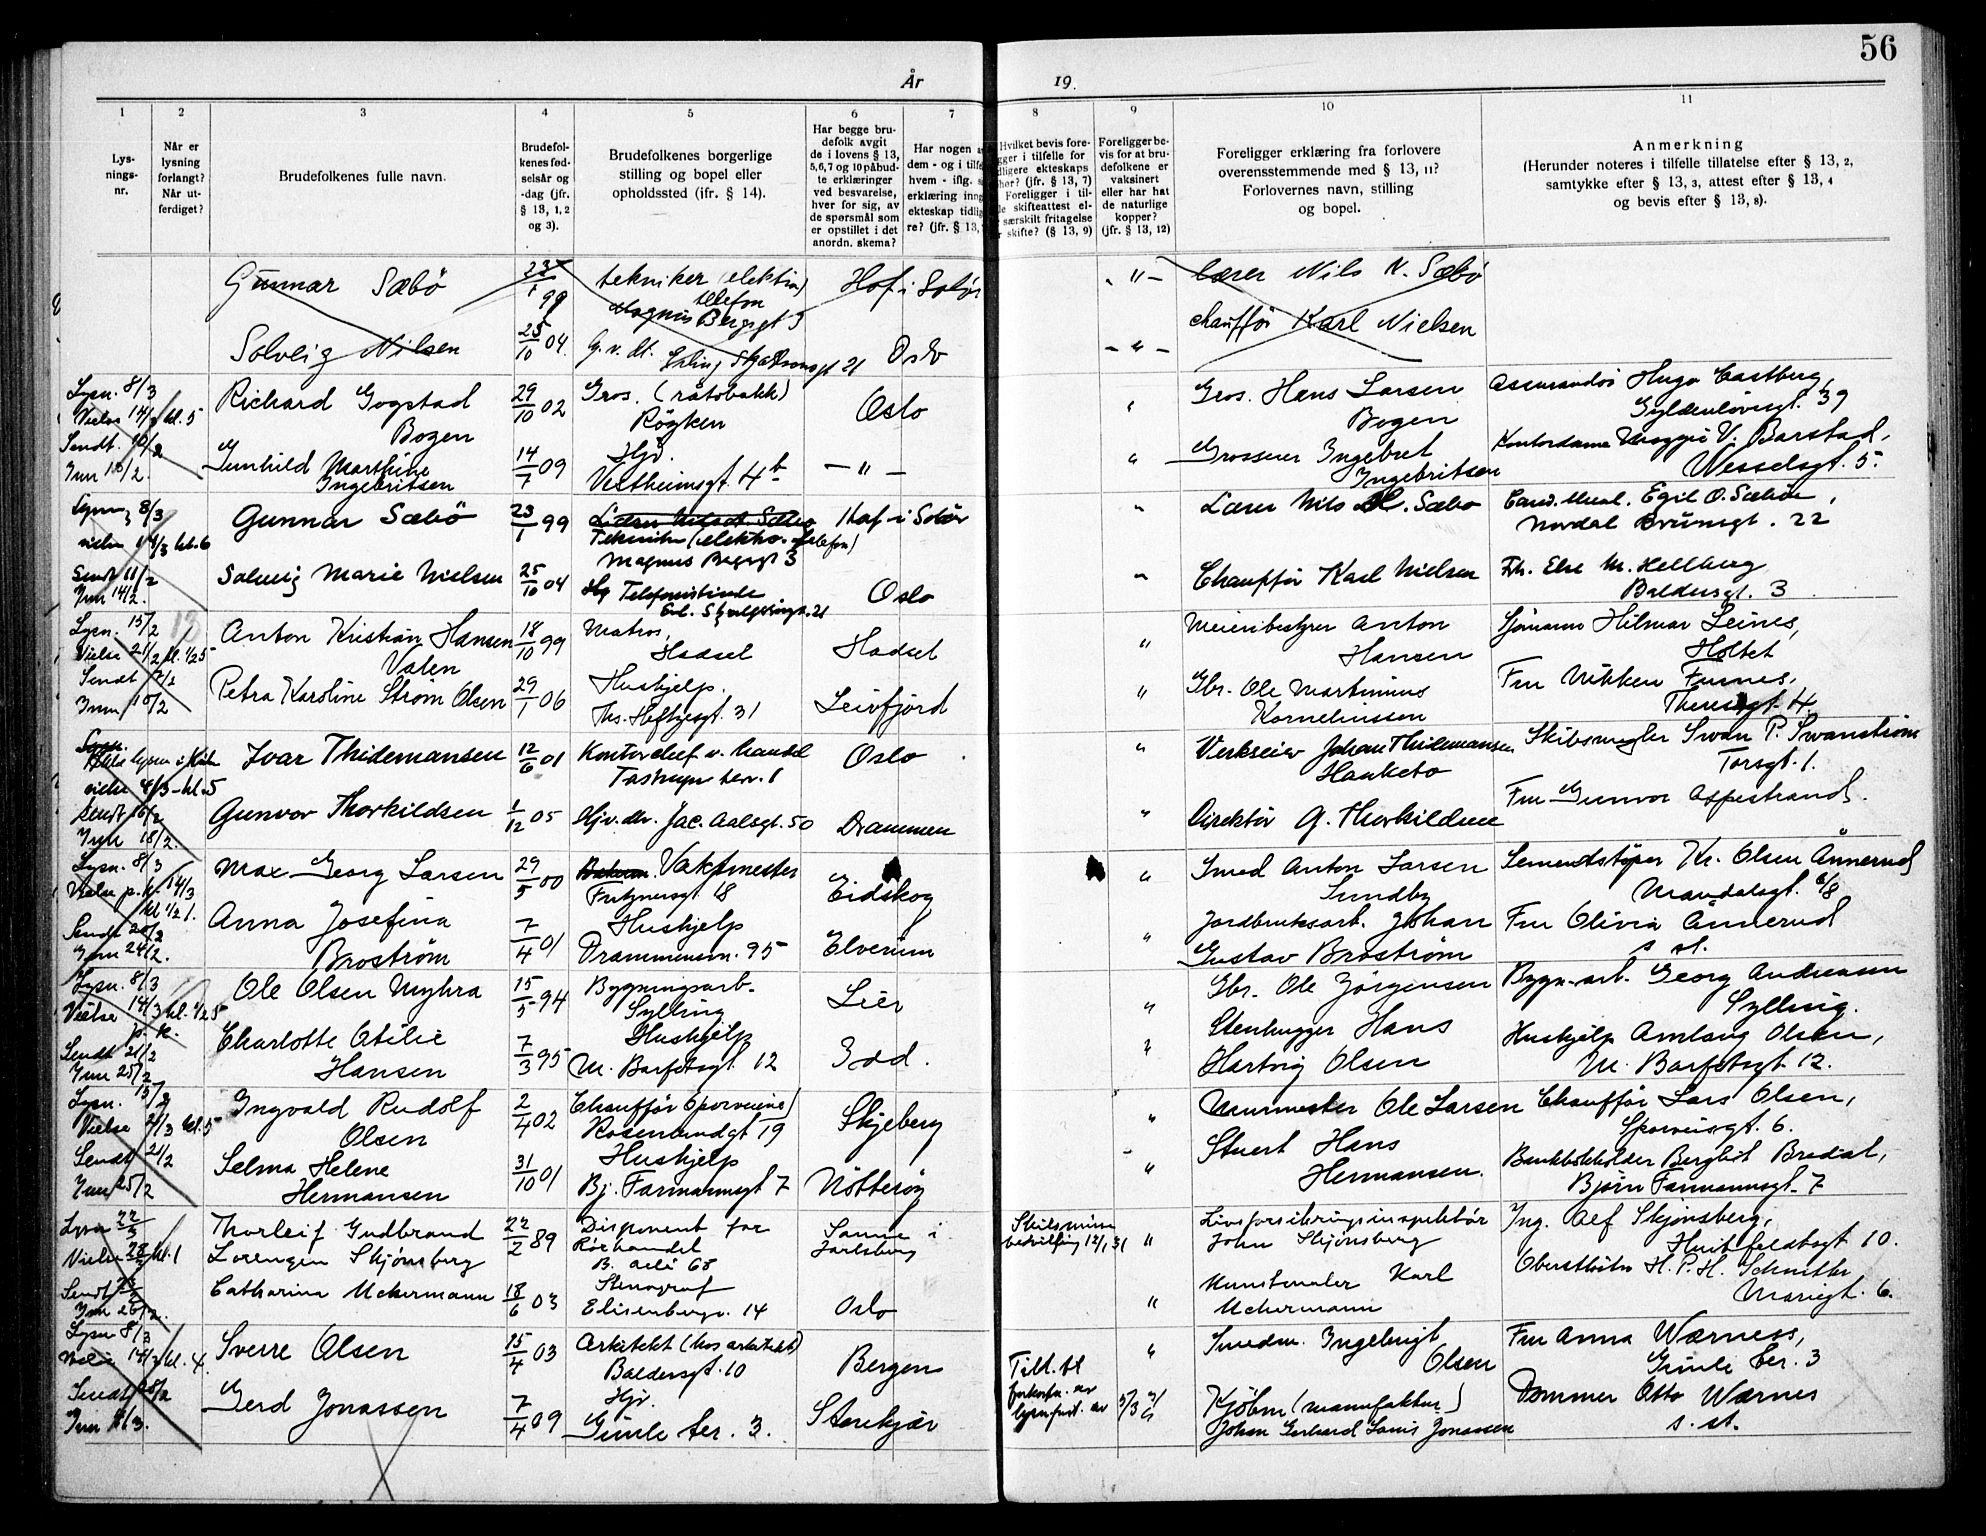 56
År 19
1 2 3 4 5 6 7 8 9 10 11
Lys-
nings-
nr.
Når er
lysning
forlangt?
Når ut-
ferdiget?
Brudefolkenes fulle navn.
Brudefol-
kenes fød-
selsår og
-dag (jfr.
§ 13, 1, 2
og 3).
Brudefolkenes borgerlige
stilling og bopel eller
opholdssted (ifr. § 14).
Har begge bru-
defolk avgit
de i lovens § 13,
5,6,7 og 10 påbud-
te erklæringer
ved besvarelse,
hver for sig, av
de spørsmål som
er opstillet i det
anordn. skema?
Har nogen a
dem - og i tilfe
hvem - iflg. s
erklæring inng
ekteskap tidlig
re? (jfr. § 13,
Hvilket bevis fore-
gger i tilfelle for
dligere ekteskaps
hør? (jfr. § 13, 7)
Foreligger i til-
le skifteattest el-
særskilt fritagelse
skifte? (§ 13, 9)
Foreligger be-
vis for at bru-
defolkene er
vaksinert
eller har hat
de naturlige
kopper?
(jfr. § 13, 12)
Foreligger erklæring fra forlovere
overensstemmende med § 13, 11?
Forlovernes navn, stilling
og bopel.
Anmerkning
(Herunder noteres i tilfelle tillatelse efter § 13, 2,
samtykke efter § 13, 3, attest efter § 13, 4
og bevis efter § 13, 8).
Gunnar Sæbö 23/1 99 tekniker (elektro) Hof i Solör - " - Lærer Nils N. Sæbö
telefon
Magnus Bergsgt 3
Solveig Nilsen 25/10 04 G.v. dt. Oslo - " - chauffør Karl Nielsen
21
Lysn. 8/3 Richard Gogstad 29/10 02 Gros. (råtobakk) Oslo " Gros. Hans Larsen Assurandør Hugo Castberg,
Vielse 14/3 kl. 5 Bogen Röyken Bogen Gyldenløvesgt. 39
Sendt 12/2 Gunhild Marthine 14/7 09 Hjv. - " - " Grosserer Ingebret Kontordame V. Barstad,
Inn 13/2. Ingebritsen Vestheimsgt. 4b Ingebritsen Wesselsgt. 5.
Lysning 8/3 Gunnar Sæbö 23/1 99 Hof i Solör " Lærer Nils Sæbö Cand. Egil O. Sæböe,
vielse 14/3 kl. 6 Tekniker (elektro. telefon) Nordal Brunsgt. 22
Magnus Bergsgt 3
Sendt 11/2 Solveig Marie Nielsen 25/10 04 Telefonistinde Oslo " Chauffør Karl Nielsen Frk. Else M. Hellberg
Inn 14/2. 21 Baldersgt. 3
Lysn. 15/2 Anton Kristian Hansen 18/10 99 Matros, Hadsel " Meieribestyrer Anton Sjömann Hilmar Leines,
Vielse 21/2 kl. 1/2 5 Valen Hadsel Hansen Holtet
Sendt Petra Karoline Strøm Olsen 29/1 06 Hushjelp. Leirfjord " Gbr. Ole Martinius Fru Furnes,
Inn 18/2 Ths. Heftyesgt. 31 Kornelinssen Theresgt. 4.
Ivar Thidemansen 12/6 01 Kontorchef v. handel Oslo " Verkseier Johan Thidemansen Skibsmegler Svan P. Svanström
vielse 4/3 - kl. 5 ter. 1 Hauketo Torsgt. 1.
Sendt 16/2 Gunvor Thorkildsen 1/12 05 Hjv. dtr. Jac. Aalsgt. 50 Drammen " Direktör G. Thorkildsen Fru Gunvor Appestrand.
Inn 18/2.
Lysn. 8/3 Max Georg Larsen 29/5 00 Vaktmester Eidskog " Smed Anton Larsen Sementstöper Kr. Olsen Ånnerud
Vielse p. k. 14/3 Fritznersgt 18 Sundby Mandalsgt. 6/8
kl 1/2 1.
Sendt 20/2 Anna Josefina 7/4 01 Hushjelp Elverum " Jordbruksarb. Johan Fru Olivia Ånnerud
Inn 24/2. Broström Drammensvn. 95 Gustav Broström s. st.
Lysn. 8/3 Ole Olsen Myhra 15/5 94 Bygningsarb. Lier " Gbr. Ole Jörgensen Bygn.arb. Georg Andreasen
Vielse 14/3 kl. 1/2 5 Sylling Sylling.
p. k.
Sendt 21/2 Charlotte Otilie 7/3 95 Hushjelp Idd. " Stenhugger Hans Hushjelp Amlaug Olsen,
Inn 25/2 Hansen M. Barfodsgt 12 Hartvig Olsen M. Barfodsgt 12.
Lysn. 15/2 Ingvald Rudolf 2/4 02 Chauffør (Sporveiene) Skjeberg " Murmester Ole Larsen Chauffør Lars Olsen,
Vielse 21/3 kl. 5 Olsen Rosenlundgt 19 Sporveisgt. 6.
Sendt 21/2 Selma Helene 31/10 01 Hushjelp Nötteröy " Stuert Hans Bankbokholder Bergliot Bredal,
Inn 25/2 Hermansen Bj. Farmannsgt 7 Hermansen. Bjørn Farmannsgt. 7
Lysn 22/2 Thorleif Gudbrand 22/2 89 Disponent for Sanne i Skilsmisse " Livsforsikringsinspektör Ing. Alf Skjönsberg,
Vielse 28/2 kl. 1 Lorengen Skjønsberg Rørhandel Jarlsberg bevilling 12/1 31 John Skjönsberg Huitfeldtsgt 10.
B. allé 68
Sendt 23/2 Catharina Uchermann 18/6 03 Stenograf Oslo " Kunstmaler Karl Oberstløitn H. P. H. Schnitler
Inn 26/2. Elisenbergv. 14 Uchermann Mariegt. 6.
Lysn 8/3 Sverre Olsen 15/4 03 Arkitekt (hos arkitekt) Bergen " Smedm. Ingebrigt Fru Anna Wærness,
Vielse 14/3 kl. 4 Baldersgt. 10 Till. til Olsen Gimle ter. 3
Sendt 28/2 Gerd Jonassen 7/4 09 Hjv. Stenkjær forkortn. av 3/3 " Kjöbm (manufaktur) Dommer Otto Wærnes
Inn 3/3. Gimle ter. 3. Johan Gerhard Louis Jonassen s. st.